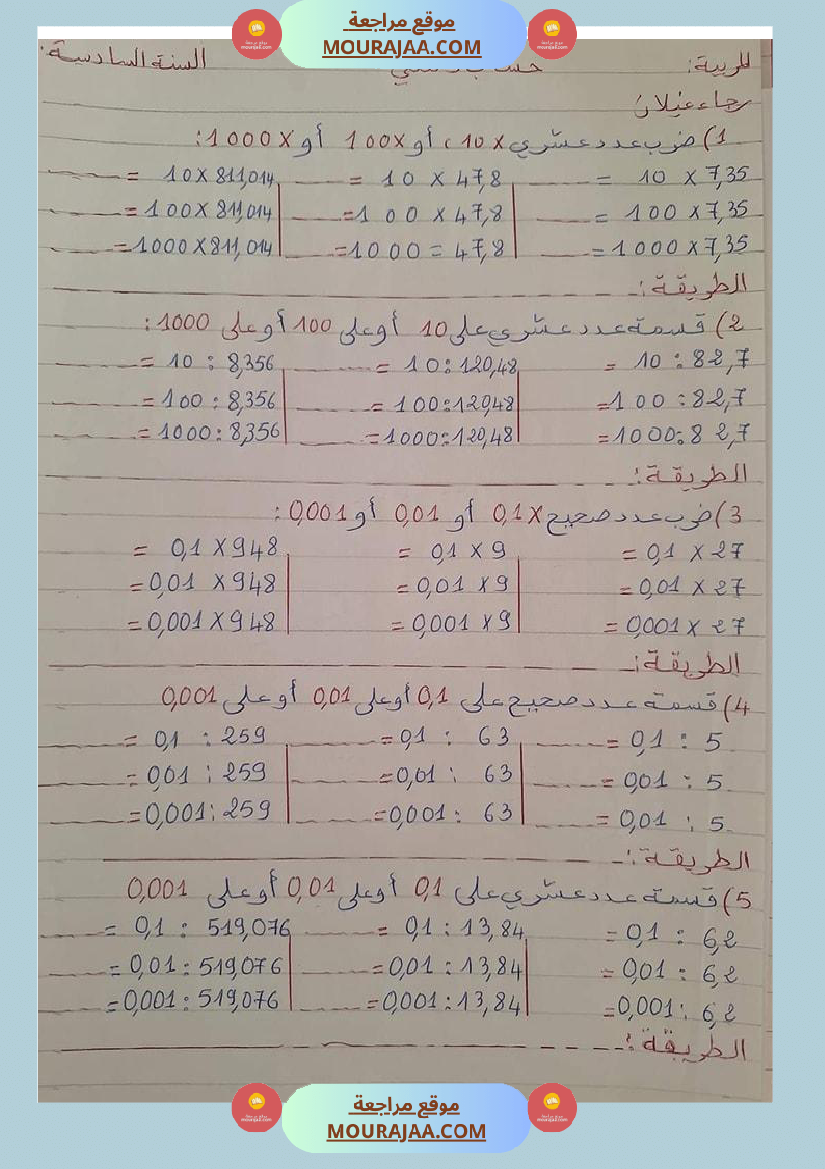 موقع مراجعة
MOURAJAA.COM
المربية: السنة السادسة.
رجاء عنيلان
1) ضرب عدد عشري x 10، أو 100x أو 1000x:
7,35 x 10 = 47,8 x 10 = 811,014 x 10 =
7,35 x 100 = 47,8 x 100 = 811,014 x 100 =
7,35 x 1000 = 47,8 = 1000 = 811,014 x 1000 =
الطريقة:
2) قسمة عدد عشري على 10 أو على 100 أو على 1000:
82,7 : 10 = 120,48 : 10 = 8,356 : 10 =
82,7 : 100 = 120,48 : 100 = 8,356 : 100 =
82,7 : 1000 = 120,48 : 1000 = 8,356 : 1000 =
الطريقة:
3) ضرب عدد صحيح x 0,1 أو 0,01 أو 0,001:
27 x 0,1 = 9 x 0,1 = 948 x 0,1 =
27 x 0,01 = 9 x 0,01 = 948 x 0,01 =
27 x 0,001 = 9 x 0,001 = 948 x 0,001 =
الطريقة:
4) قسمة عدد صحيح على 0,1 أو على 0,01 أو على 0,001
5 : 0,1 = 63 : 0,1 = 259 : 0,1 =
5 : 0,01 = 63 : 0,01 = 259 : 0,01 =
5 : 0,01 = 63 : 0,001 = 259 : 0,001 =
الطريقة:
5) قسمة عدد عشري على 0,1 أو على 0,01 أو على 0,001
6,2 : 0,1 = 13,84 : 0,1 = 519,076 : 0,1 =
6,2 : 0,01 = 13,84 : 0,01 = 519,076 : 0,01 =
6,2 : 0,001 = 13,84 : 0,001 = 519,076 : 0,001 =
الطريقة:
موقع مراجعة
MOURAJAA.COM